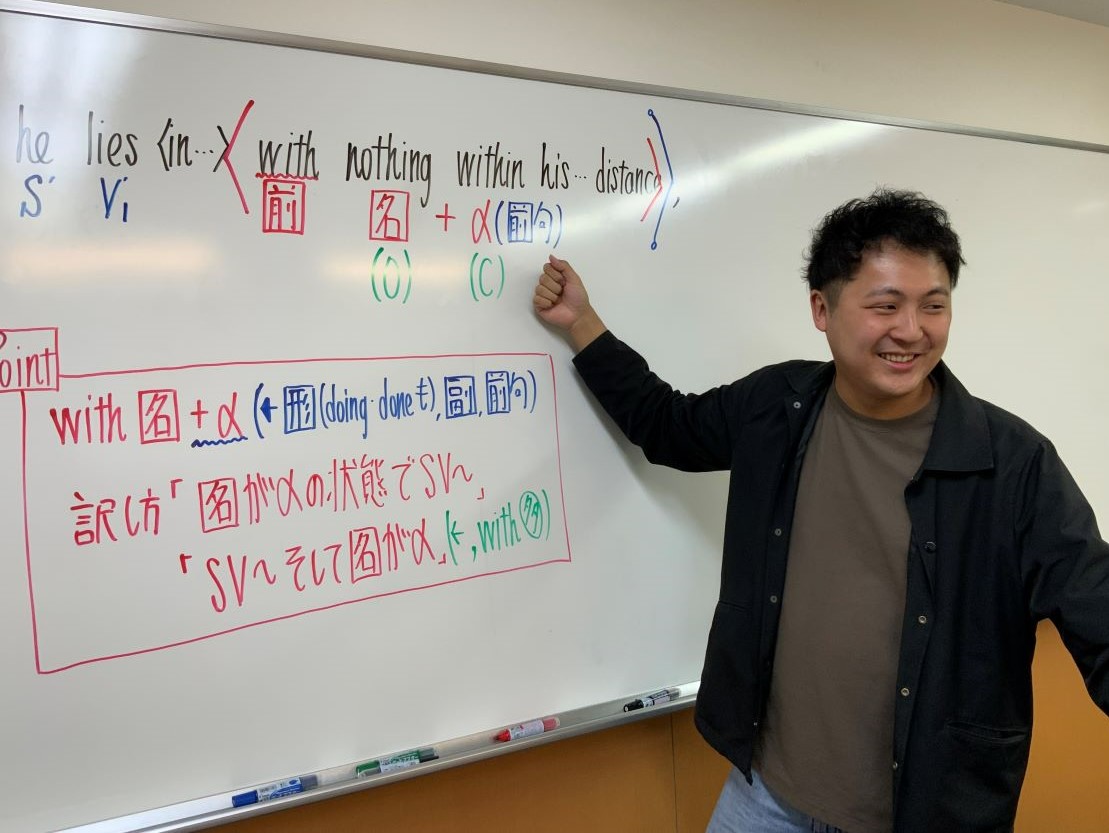 he lies 〈in…〉〈with nothing within his … distance〉〉,
S' V'i 前 名 + α(前句)
(O) (C)
Point
with 名 + α (← 形(doing・done t), 副, 前句)
訳し方「名がαの状態でSV〜」
「SV〜そして名がα」(←, with 名)